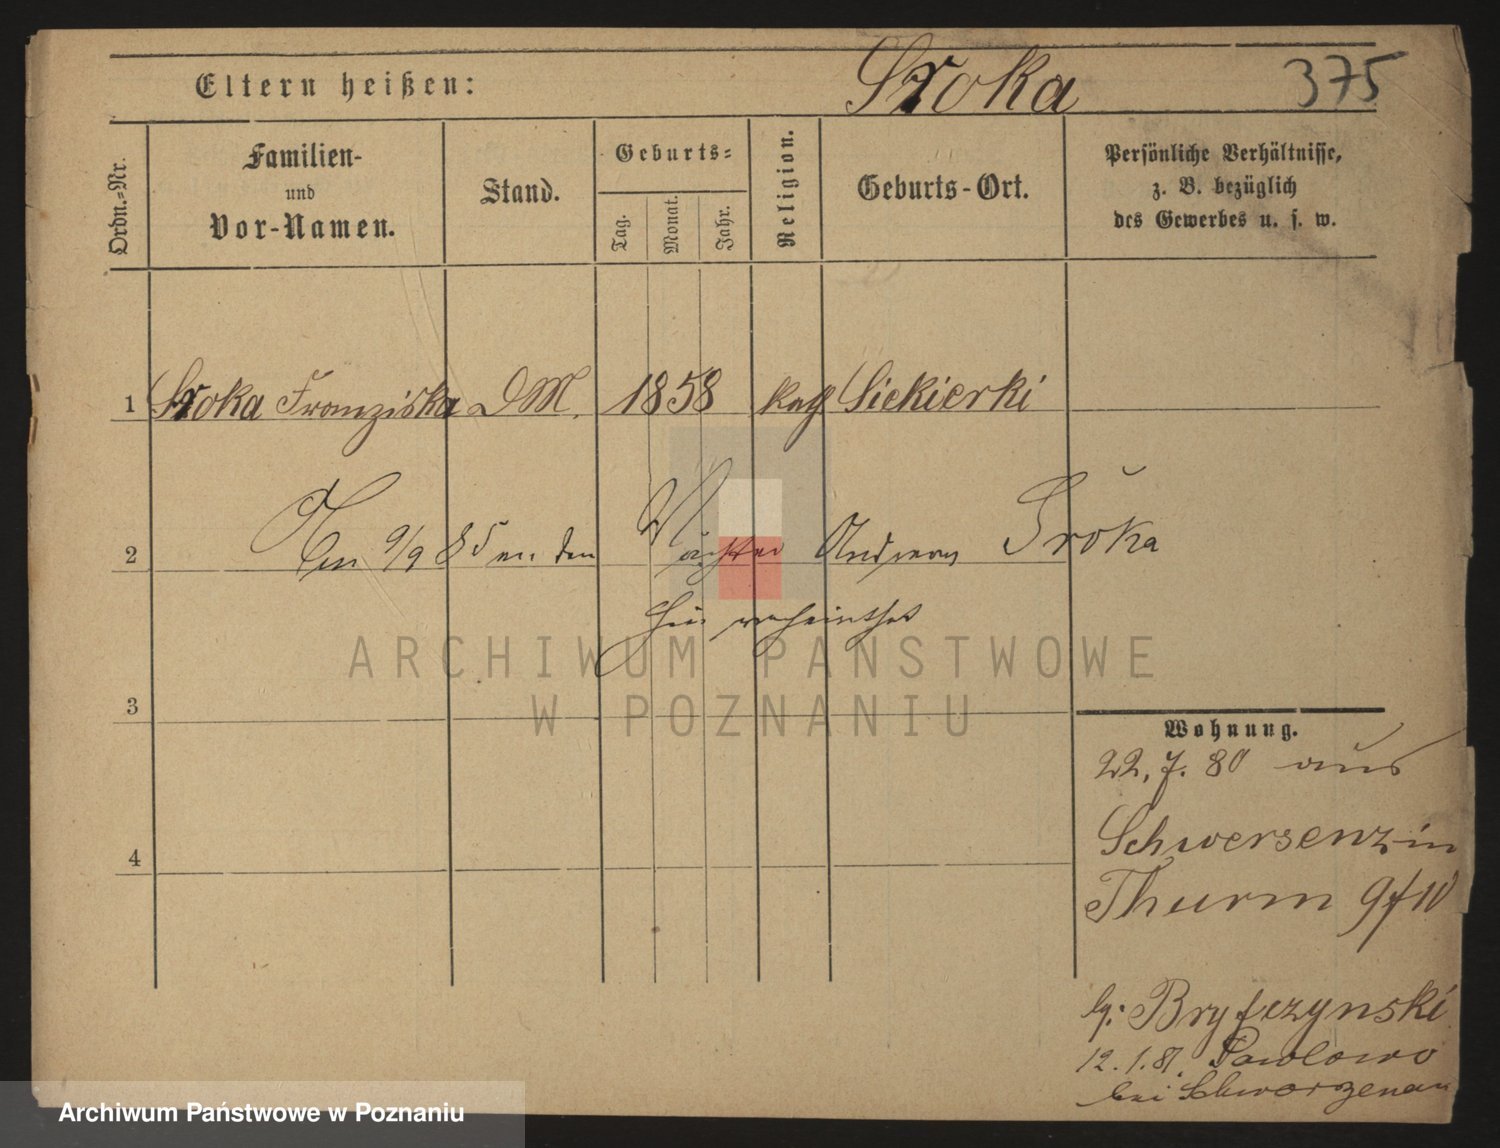 Eltern heißen: Sroka 375
Ordn.-Nr.
Familien-
und
Vor-Namen.
Stand.
Geburts-
Tag.
Monat.
Jahr.
Religion.
Geburts-Ort.
Persönliche Verhältnisse,
z. B. bezüglich
des Gewerbes u. s. w.
1 Sroka Franziska DM. 1858 kath Siekierki
2 Den 9/9 85 an den Wächter Andreas Sroka
hier verheirathet
ARCHIWUM PAŃSTWOWE
W POZNANIU
3
Wohnung.
22. 7. 80 aus
Schwersenz in
Thurm 9/10
4
12. 1. 81. Pawlowo
bei Schwarzenau
Archiwum Państwowe w Poznaniu